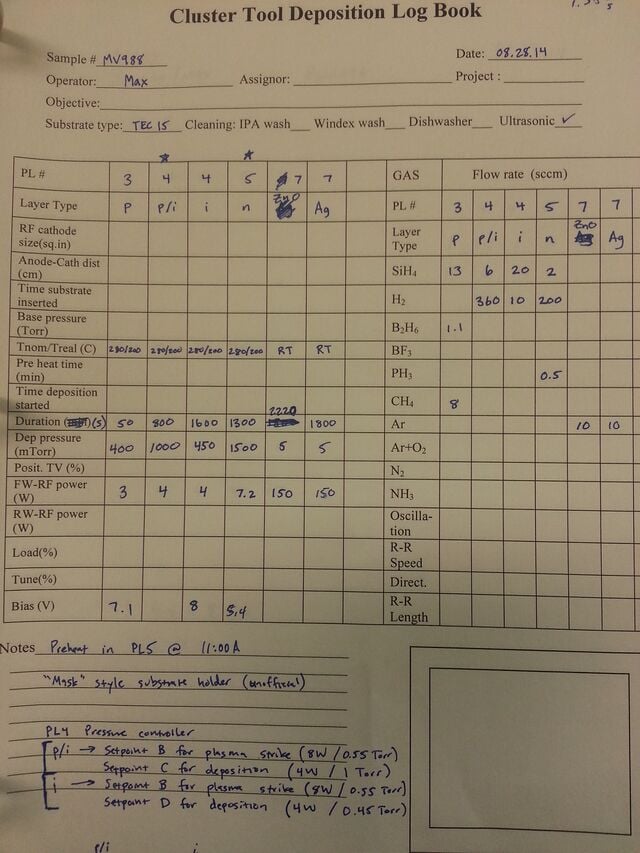 Cluster Tool Deposition Log Book
Sample # MV988 Date: 08.28.14
Operator: Max Assignor: Project :
Objective:
Substrate type: TEC 15 Cleaning: IPA wash Windex wash Dishwasher Ultrasonic ✓
PL # 3 4 4 5 7 7 GAS Flow rate (sccm)
Layer Type P P/i i n ZnO Ag PL # 3 4 4 5 7 7
RF cathode size(sq.in) Layer Type P P/i i n ZnO Ag
Anode-Cath dist (cm) SiH4 13 6 20 2
Time substrate inserted H2 360 10 200
Base pressure (Torr) B2H6 1.1
Tnom/Treal (C) 280/200 280/200 280/200 280/200 RT RT BF3
Pre heat time (min) PH3 0.5
Time deposition started CH4 8
Duration (s) 50 800 1600 1300 2220 1800 Ar 10 10
Dep pressure (mTorr) 400 1000 450 1500 5 5 Ar+O2
Posit. TV (%) N2
FW-RF power (W) 3 4 4 7.2 150 150 NH3
RW-RF power (W) Oscilla-tion
Load(%) R-R Speed
Tune(%) Direct.
Bias (V) 7.1 8 5.4 R-R Length
Notes Preheat in PL5 @ 11:00A
"Mask" style substrate holder (unofficial)
PL4 Pressure controller
P/i → Setpoint B for plasma strike (8W / 0.55 Torr)
Setpoint C for deposition (4W / 1 Torr)
i → Setpoint B for plasma strike (8W / 0.55 Torr)
Setpoint D for deposition (4W / 0.45 Torr)
P/i i